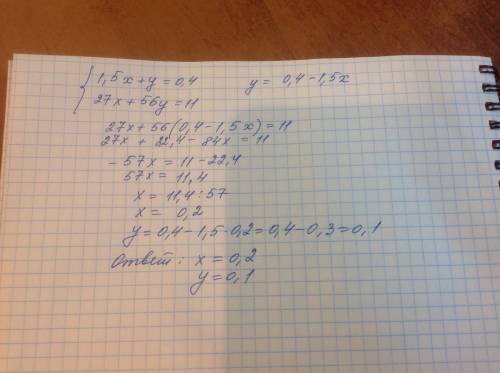 { 1,5x+y=0,4   y = 0,4-1,5x
27x+56y=11
27x+56(0,4-1,5x)=11
27x+22,4-84x=11
-57x=11-22,4
57x=11,4
x=11,4:57
x=0,2
y=0,4-1,5·0,2=0,4-0,3=0,1
Ответ: x=0,2
y=0,1